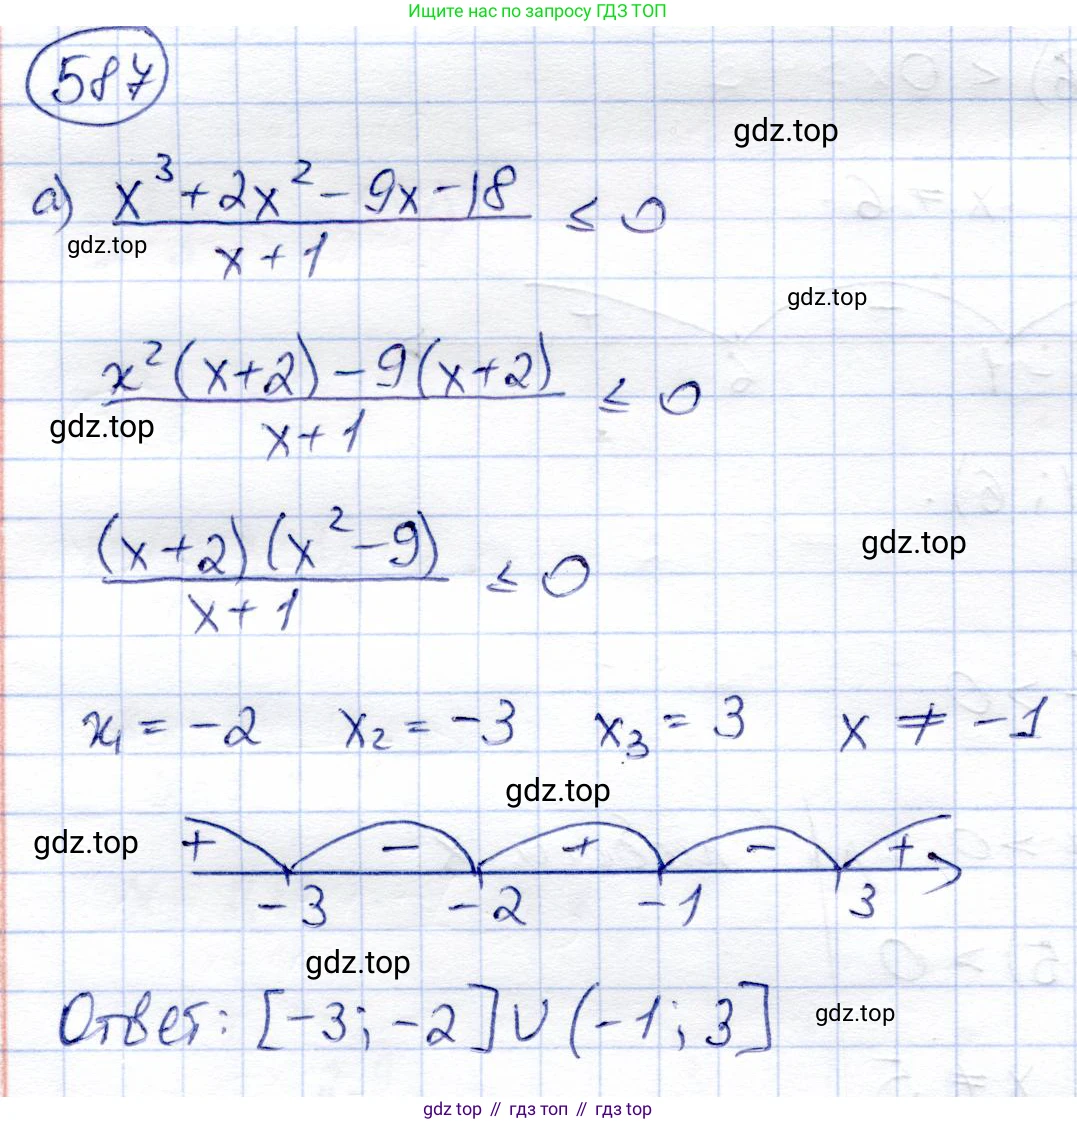 Ищите нас по запросу ГДЗ ТОП
587
gdz.top
а) (x³ + 2x² - 9x - 18)/(x + 1) ≤ 0
gdz.top
gdz.top
(x²(x+2) - 9(x+2))/(x+1) ≤ 0
gdz.top
((x+2)(x²-9))/(x+1) ≤ 0
gdz.top
x₁ = -2 x₂ = -3 x₃ = 3 x ≠ -1
gdz.top
gdz.top
+ - + - +
-3 -2 -1 3
gdz.top
Ответ: [-3; -2] ∪ (-1; 3]
gdz.top
gdz top // гдз топ // gdz top